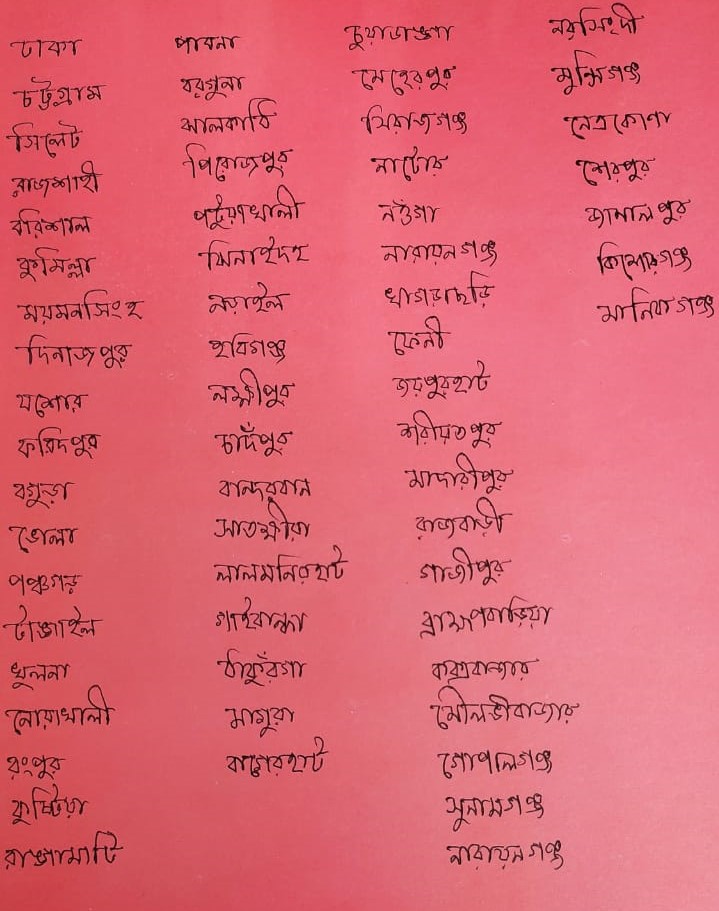 ঢাকা
চট্টগ্রাম
সিলেট
রাজশাহী
বরিশাল
কুমিল্লা
ময়মনসিংহ
দিনাজপুর
যশোর
ফরিদপুর
বগুড়া
ভোলা
পঞ্চগড়
টাঙ্গাইল
খুলনা
নোয়াখালী
রংপুর
কুষ্টিয়া
রাঙ্গামাটি
পাবনা
বরগুনা
ঝালকাঠি
পিরোজপুর
পটুয়াখালী
ঝিনাইদহ
নড়াইল
হবিগঞ্জ
লক্ষ্মীপুর
চাদঁপুর
বান্দরবান
সাতক্ষীরা
লালমনিরহাট
গাইবান্ধা
ঠাকুঁরগা
মাগুরা
বাগেরহাট
চুয়াডাঙ্গা
মেহেরপুর
সিরাজগঞ্জ
নাটোর
নওঁগা
নারায়নগঞ্জ
খাগড়াছড়ি
ফেনী
জয়পুরহাট
শরীয়তপুর
মাদারীপুর
রাজবাড়ী
গাজীপুর
ব্রাহ্মণবাড়িয়া
কক্সবাজার
মৌলভীবাজার
গোপালগঞ্জ
সুনামগঞ্জ
নারায়নগঞ্জ
নরসিংদী
মুন্সিগঞ্জ
নেত্রকোণা
শেরপুর
জামালপুর
কিশোরগঞ্জ
মানিকগঞ্জ